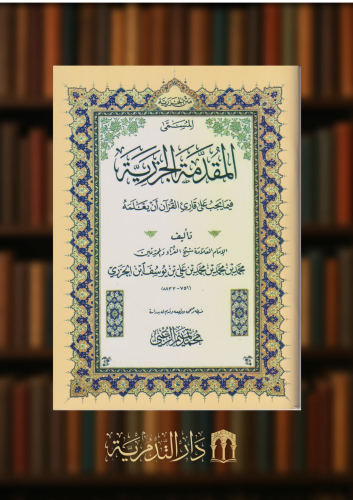 متن الجزرية
المسمى
المقدمة الجزرية
فيما يجب على قارئ القرآن أن يعلمه
تأليف
الإمام العلامة شيخ القراء والمحدثين
محمد بن محمد بن محمد بن علي بن يوسف ابن الجزري
(٧٥١-٨٣٣هـ)
محمد تميم الزعبي
دار التدمرية